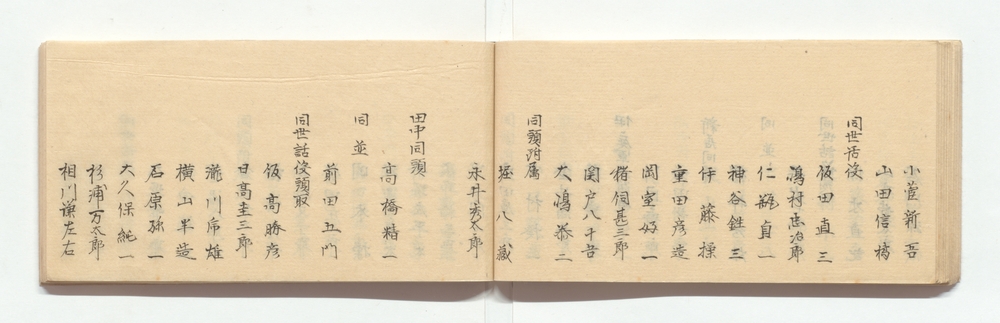 小菅新吾
山田信橘
同世话役
飯田直三
嶋村忠治郎
仁瓶貞一
神谷銈三
伊藤操
重田彦造
岡室好一
猪飼甚三郎
関戸八十吉
大嶋恭二
同頭附属
堀八蔵
永井秀太郎
高橋精一
田中同頭
同並
前田五門
同世話役頭取
飯高勝彦
日高圭三郎
瀧川席雄
横山半造
石原孫一
大久保純一
杉浦万太郎
相川兼左右